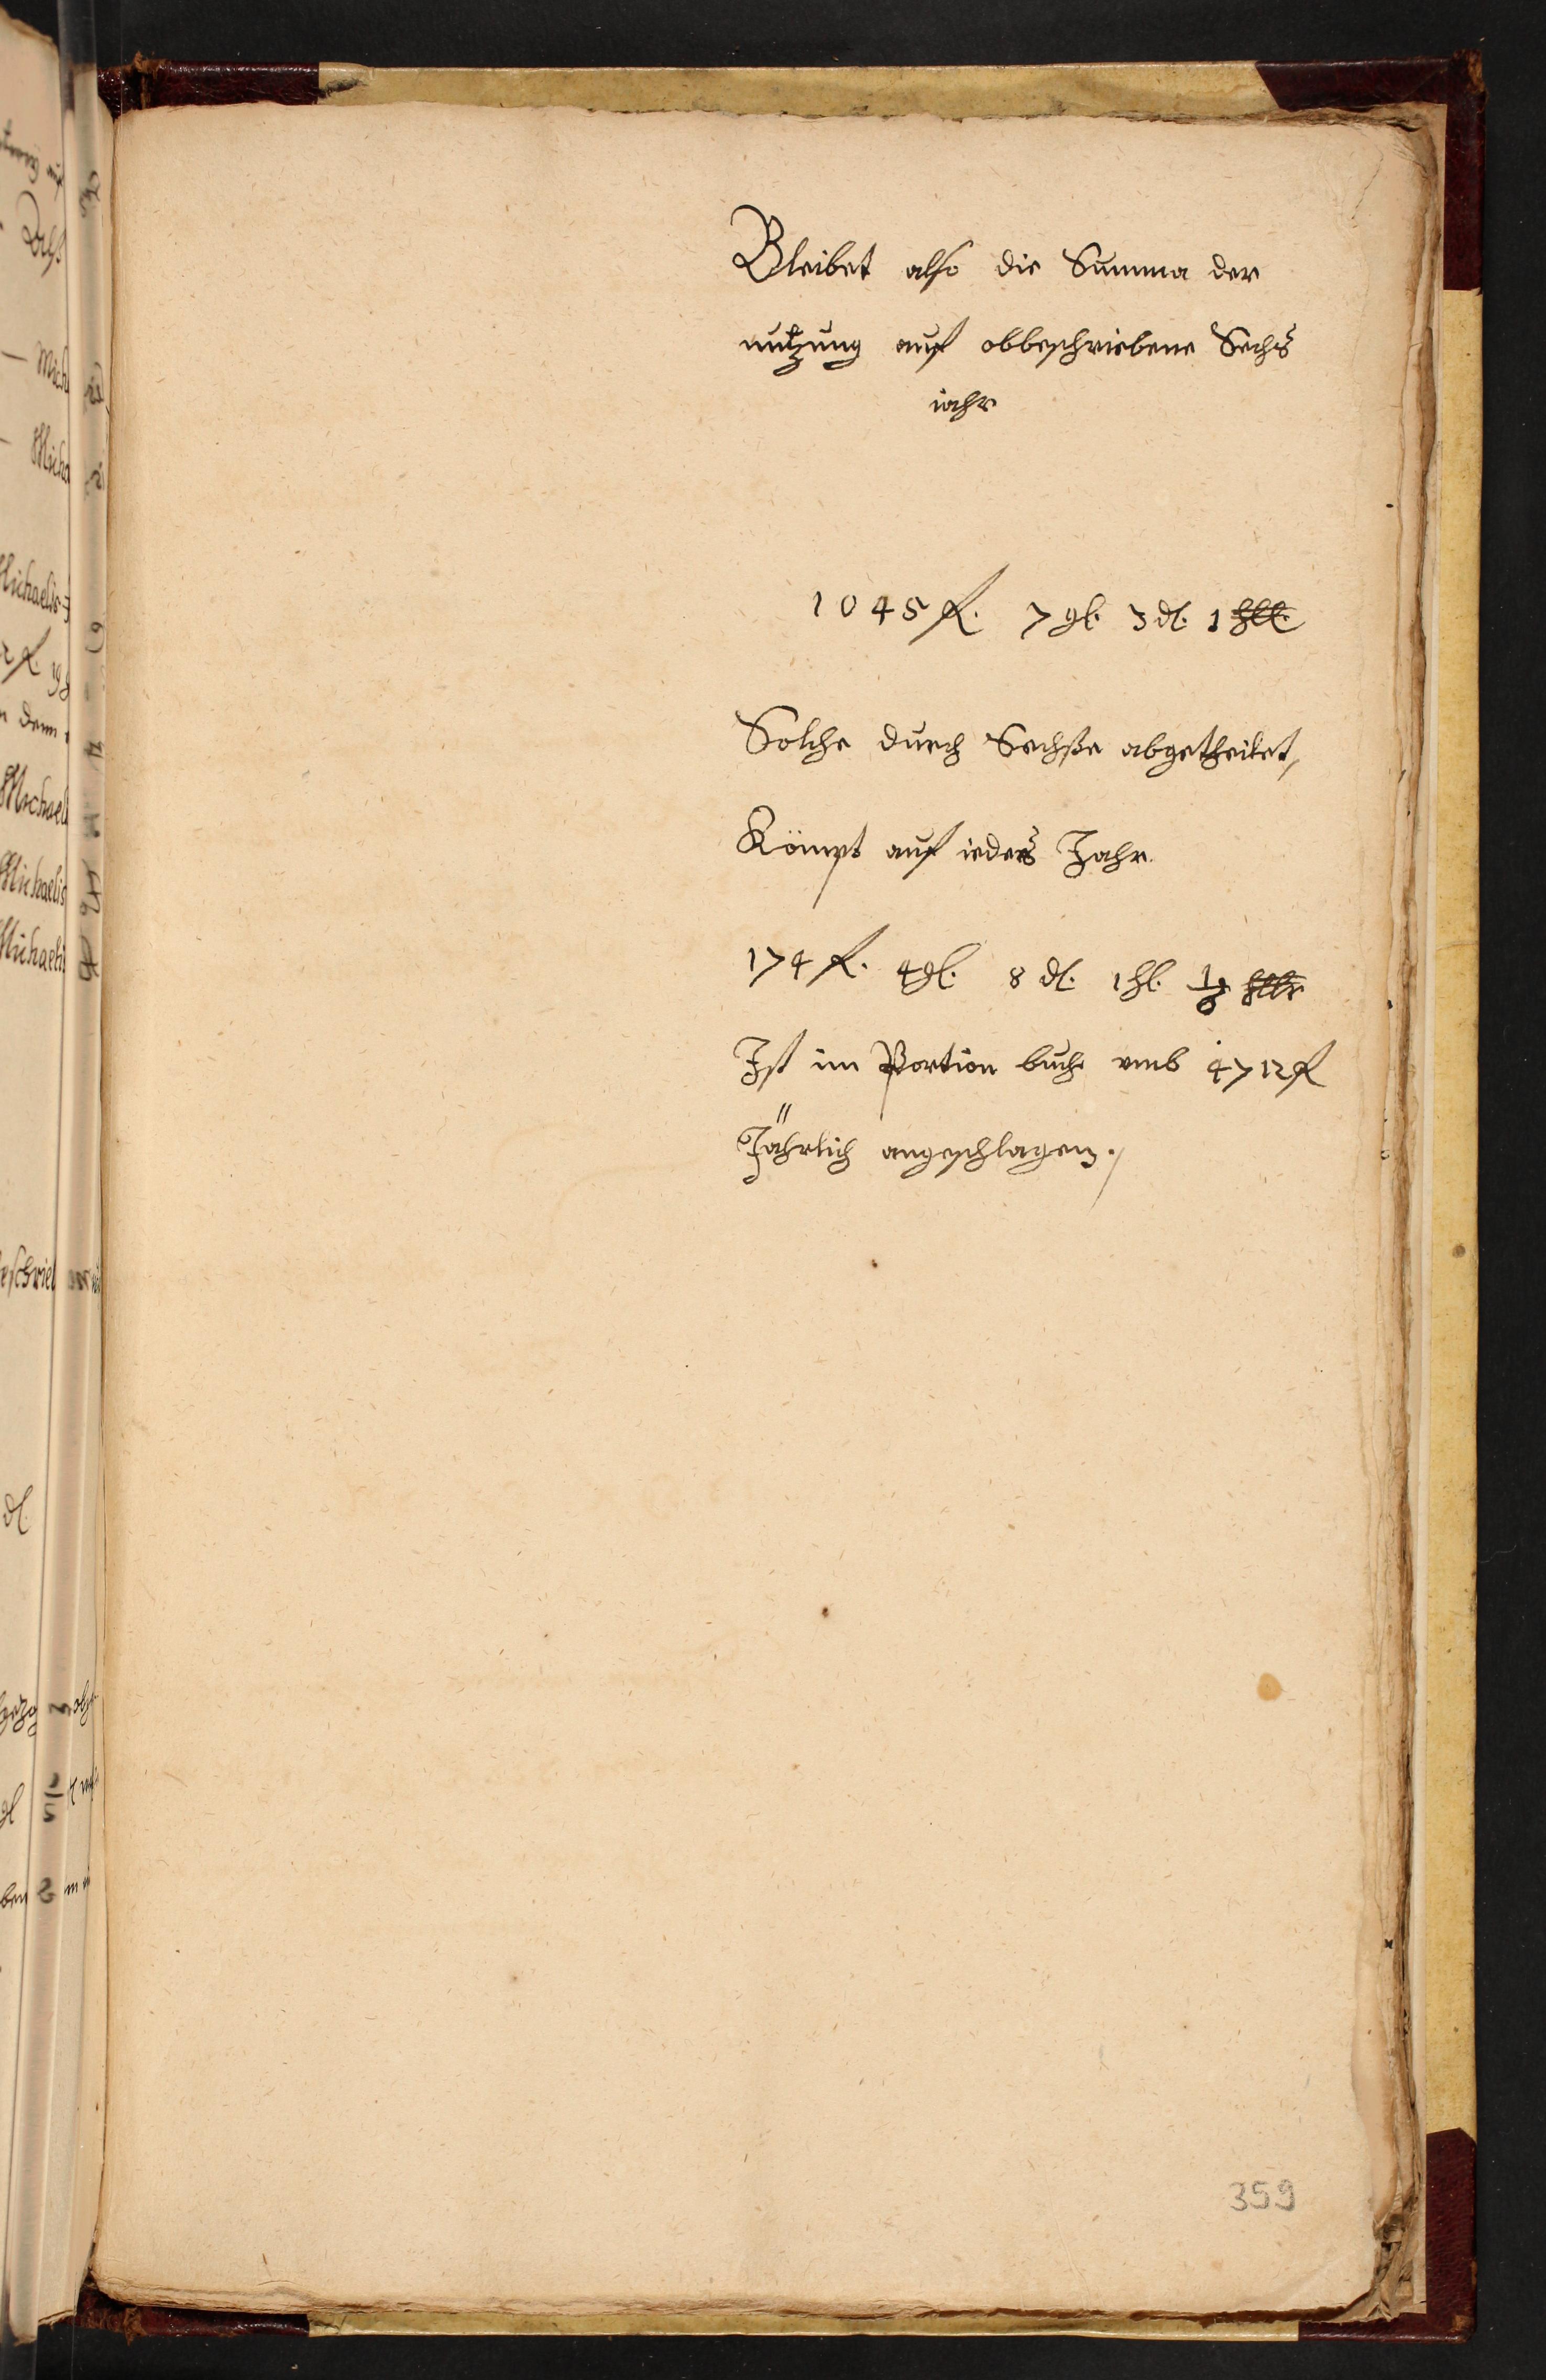 Bleibet also die Summa der
nutzung auf obbeschriebene Sechs
iahr
1045 fl. 7 gl. 3 dl. 1 hll.
Solche durch Sechße abgetheilet,
Kömpt auf iedes Jahr
174 fl. 4 gl. 8 dl. 1 hl. hllr
Ist im Portion buch vmb 4712 fl
Jährlich angeschlagen.
359